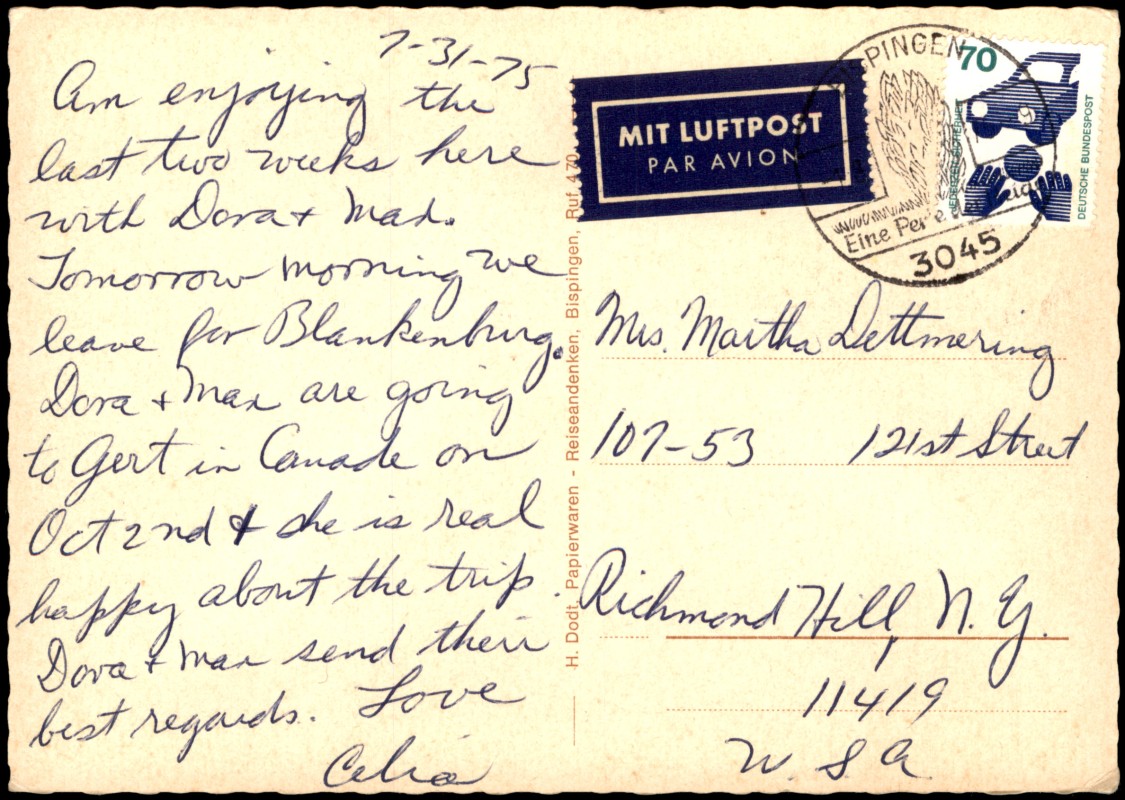 7-31-75
Am enjoying the
last two weeks here
with Dora + Max.
Tomorrow morning we
leave for Blankenburg.
Dora + Max are going
to Gert in Canada on
Oct 2nd & she is real
happy about the trip.
Dora + Max send their
best regards. Love
Celia
H. Dodt, Papierwaren - Reiseandenken, Bispingen, Ruf 470
MIT LUFTPOST
PAR AVION
BISPINGEN
Eine Perle
3045
70
DEUTSCHE BUNDESPOST
Mrs. Martha Dettmering
107-53 121st Street
Richmond Hill, N.Y.
11419
U.S.A.